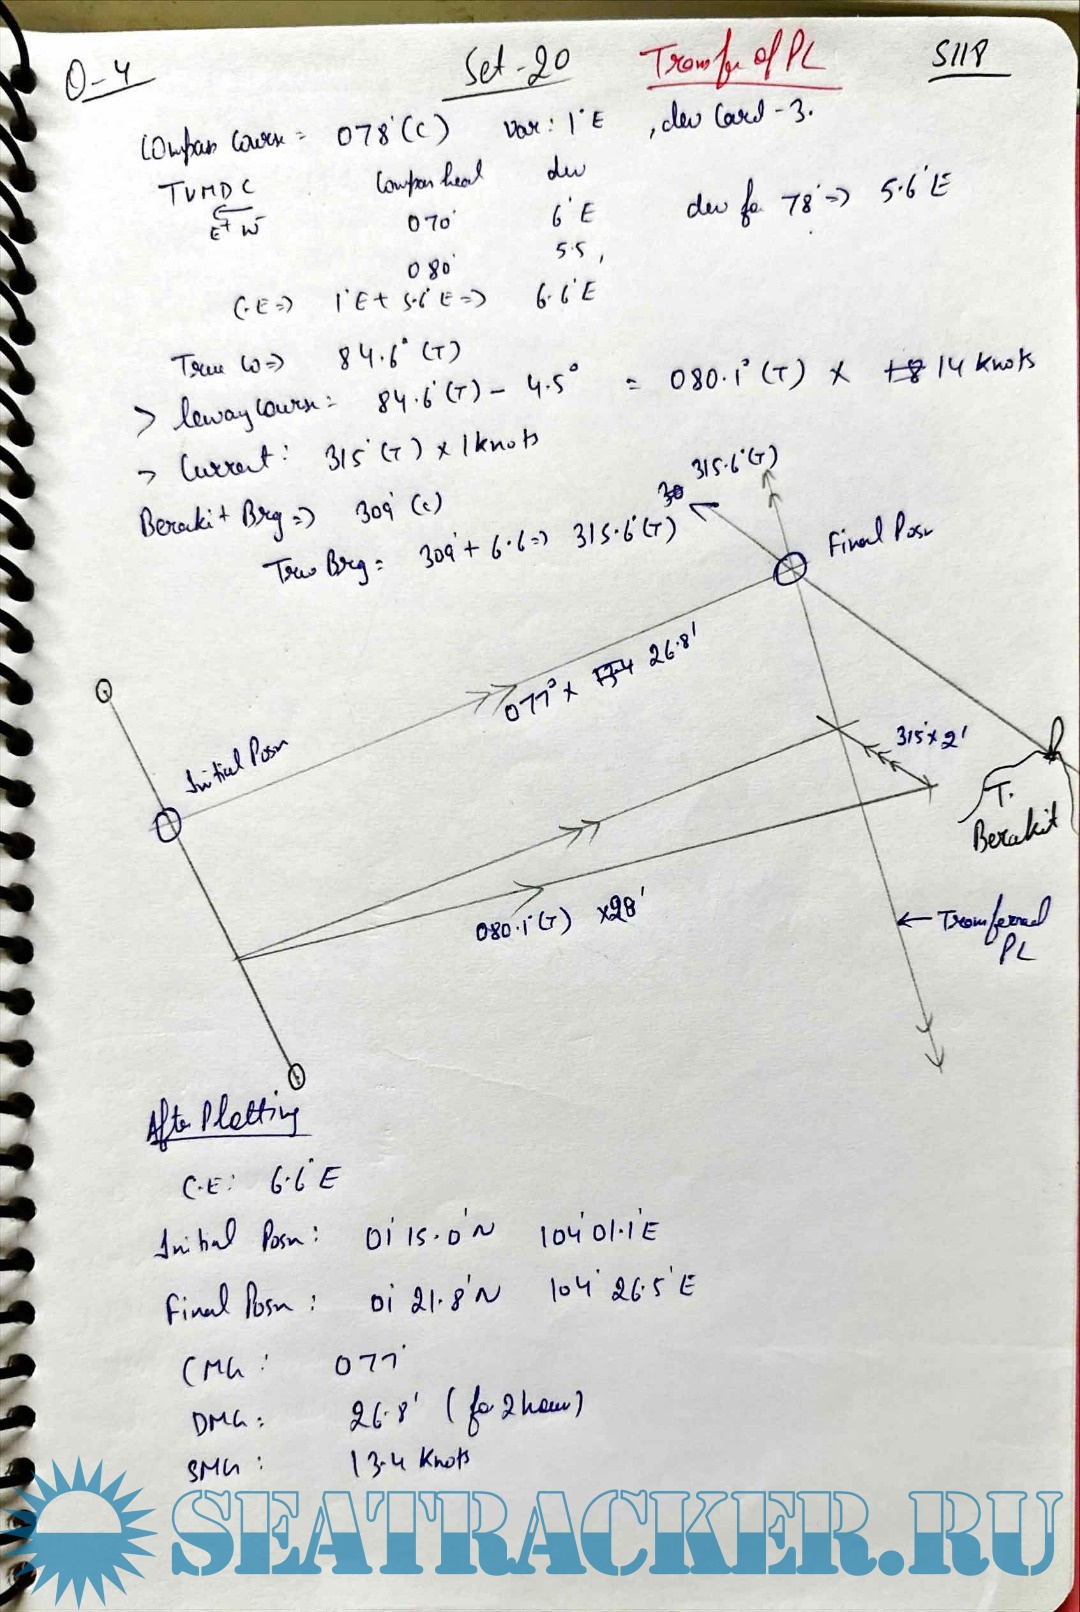 Q-4 Set-20 Transfer of PL S118
Compass Course = 078°(C) var: 1°E , dev Card-3.
TVMDC Compass head dev
E+ W- 070° 6°E dev for 78° => 5.6°E
080° 5.5,
C.E => 1°E + 5.6°E => 6.6°E
True Co => 84.6° (T)
> leway Course = 84.6°(T) - 4.5° = 080.1° (T) x 14 knots
> Current: 315°(T) x 1 knots
Berakit Brg => 309° (C)
True Brg = 309° + 6.6 => 315.6°(T)
315.6°(T)
Final Posn
077° x 26.8'
Initial Posn
315° x 2'
T. Berakit
080.1°(T) x28'
← Transferred PL
After Plotting
C.E: 6.6°E
Initial Posn: 01° 15.0'N 104° 01.1'E
Final Posn: 01° 21.8'N 104° 26.5'E
CMG: 077°
DMG: 26.8' (for 2 hour)
SMG: 13.4 Knots
SEATRACKER.RU